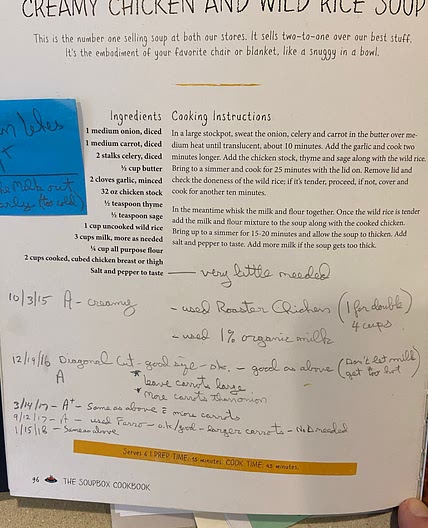 CREAMY CHICKEN AND WILD RICE SOUP
This is the number one selling soup at both our stores. It sells two-to-one over our best stuff.
It's the embodiment of your favorite chair or blanket, like a snuggy in a bowl.
Ingredients
1 medium onion, diced
1 medium carrot, diced
2 stalks celery, diced
½ cup butter
2 cloves garlic, minced
32 oz chicken stock
½ teaspoon thyme
½ teaspoon sage
1 cup uncooked wild rice
3 cups milk, more as needed
¼ cup all purpose flour
2 cups cooked, cubed chicken breast or thigh
Salt and pepper to taste — very little needed
Cooking Instructions
In a large stockpot, sweat the onion, celery and carrot in the butter over me-
dium heat until translucent, about 10 minutes. Add the garlic and cook two
minutes longer. Add the chicken stock, thyme and sage along with the wild rice.
Bring to a simmer and cook for 25 minutes with the lid on. Remove lid and
check the doneness of the wild rice; if it's tender, proceed, if not, cover and
cook for another ten minutes.
In the meantime whisk the milk and flour together. Once the wild rice is tender
add the milk and flour mixture to the soup along with the cooked chicken.
Bring up to a simmer for 15-20 minutes and allow the soup to thicken. Add
salt and pepper to taste. Add more milk if the soup gets too thick.
milk out
too cold
10/3/15 A - creamy - used Roaster Chicken (1 for double)
4 cups
- used 1% organic milk
12/19/16 Diagonal Cut - good size - - good as above (Don't let milk
get too hot)
A * leave carrots large
* more carrots than onion
3/14/17 - A+ - Same as above more carrots
9/12/17 - A - used Farro - ok/good - larger carrots - needed
1/15/18 - Same as above
Serves 6 | PREP TIME: 15 minutes COOK TIME: 45 minutes.
96 THE SOUPBOX COOKBOOK